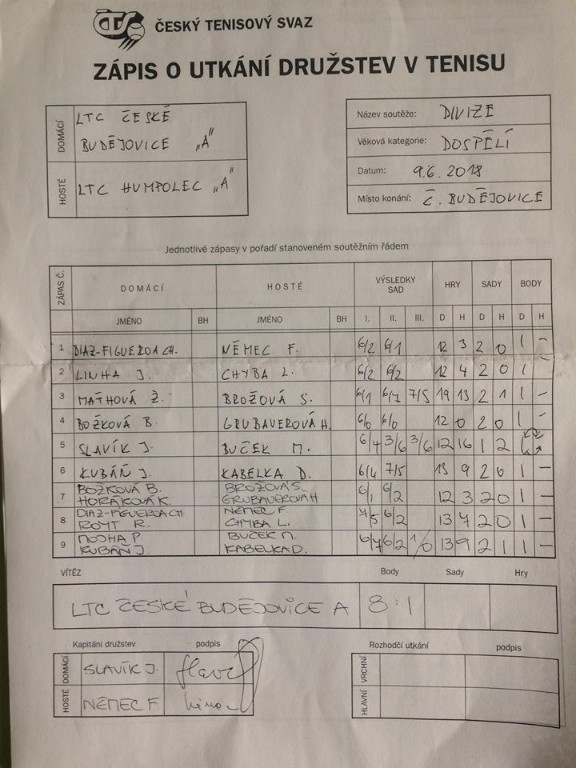 ČTS ČESKÝ TENISOVÝ SVAZ
ZÁPIS O UTKÁNÍ DRUŽSTEV V TENISU
DOMÁCÍ LTC ČESKÉ
BUDĚJOVICE „A"
HOSTÉ LTC HUMPOLEC „A"
Název soutěže: DIVIZE
Věková kategorie: DOSPĚLÍ
Datum: 9.6.2018
Místo konání: Č. BUDĚJOVICE
Jednotlivé zápasy v pořadí stanoveném soutěžním řádem
ZÁPAS Č. DOMÁCÍ HOSTÉ VÝSLEDKY SAD HRY SADY BODY
JMÉNO BH JMÉNO BH I. II. III. D H D H D H
1 DIAZ-FIGUEROA CH. NĚMEC F. 6/2 6/1 12 3 2 0 1 -
2 LINHA J. CHYBA L. 6/2 6/2 12 4 2 0 1 -
3 MATHOVÁ Ž. BROŽOVÁ S. 6/1 6/7 7/5 19 13 2 1 1 -
4 BOŽKOVÁ B. GRUBAUEROVÁ H. 6/0 6/0 12 0 2 0 1 -
5 SLAVÍK J. BUČEK M. 6/4 3/6 3/6 12 16 1 2
6 KUBÁŇ J. KABELKA D. 6/4 7/5 13 9 2 0 1 -
7 BOŽKOVÁ B. BROŽOVÁ S. 6/1 6/2 12 3 2 0 1 -
HORÁKOVÁ K. GRUBAUEROVÁ H
8 DIAZ-FIGUEROA CH NĚMEC F. 7/5 6/2 13 7 2 0 1 -
ROMT R. CHYBA L.
9 MOJHA P BUČEK M. 6/7 6/2 1/0 13 9 2 1 1 -
KUBÁŇ J. KABELKA D.
VÍTĚZ Body Sady Hry
LTC ČESKÉ BUDĚJOVICE A 8:1
Kapitáni družstev podpis
DOMÁCÍ SLAVÍK J.
HOSTÉ NĚMEC F
Rozhodčí utkání podpis
VRCHNÍ
HLAVNÍ